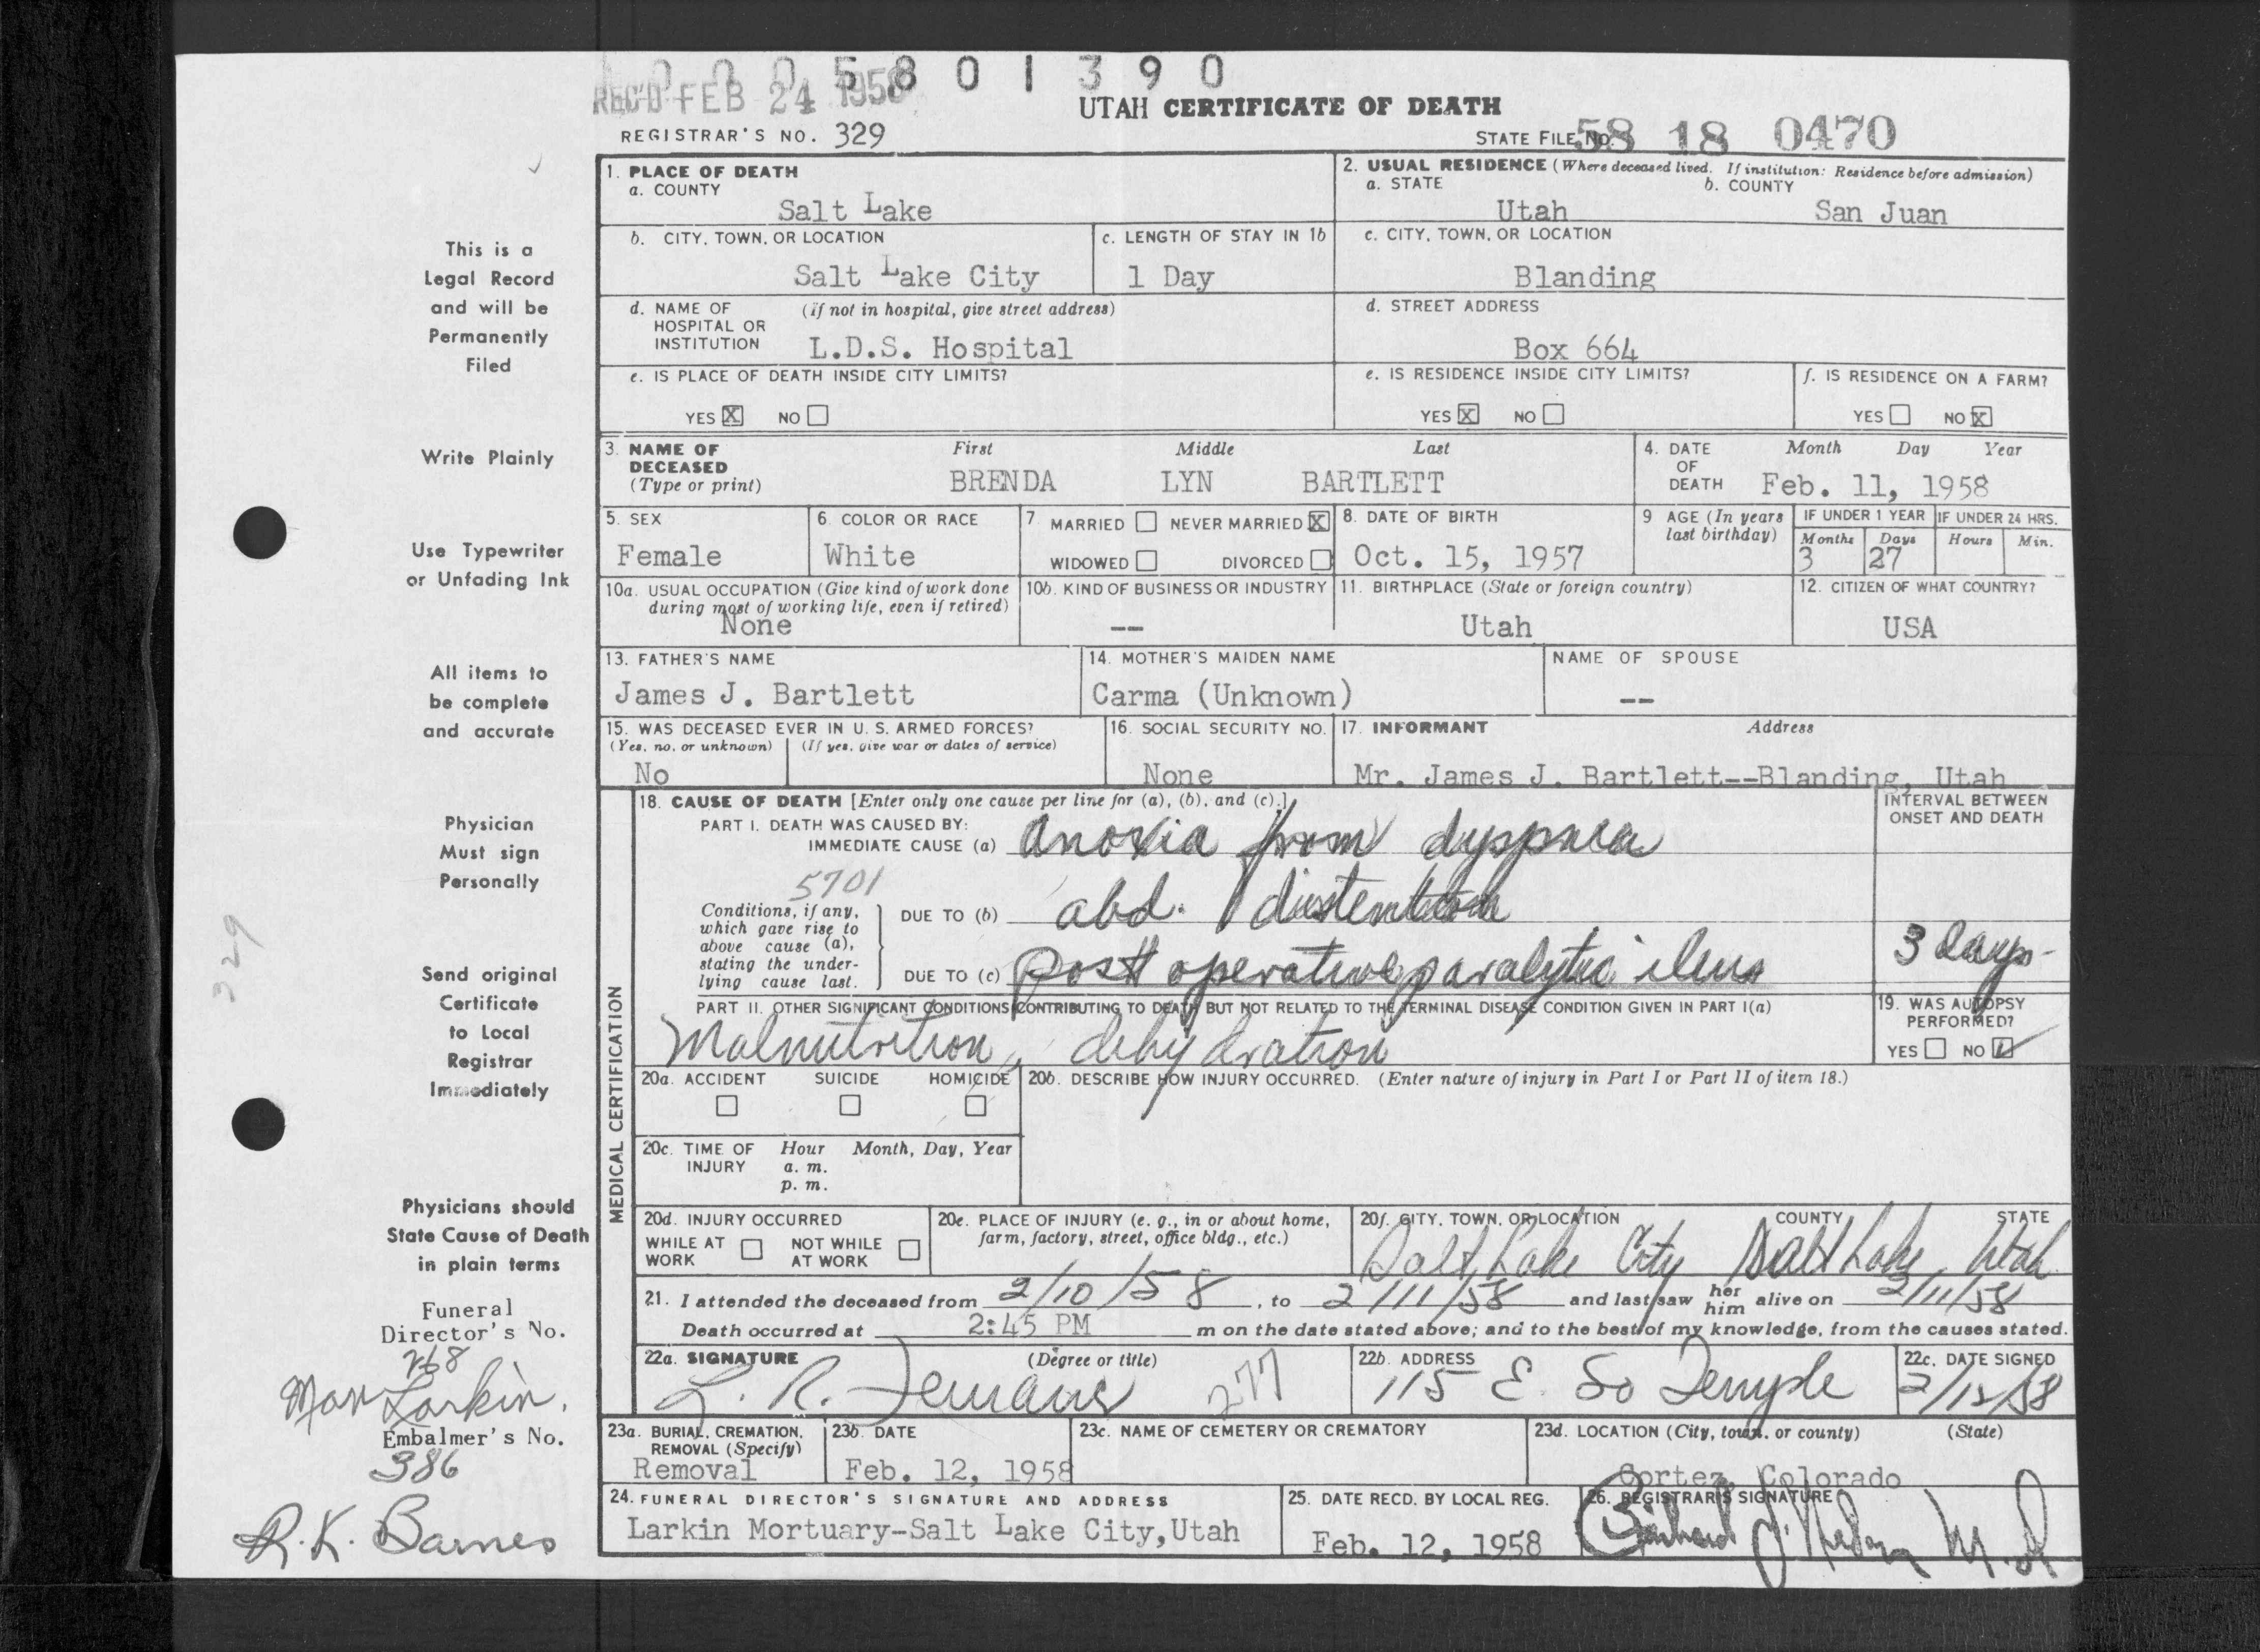 0 0 0 5 8 0 1 3 9 0
REC'D FEB 24 1958
UTAH CERTIFICATE OF DEATH
REGISTRAR'S NO. 329
STATE FILE NO. 58 18 0470
1. PLACE OF DEATH
a. COUNTY
Salt Lake
2. USUAL RESIDENCE (Where deceased lived. If institution: Residence before admission)
a. STATE b. COUNTY
Utah San Juan
b. CITY, TOWN, OR LOCATION
Salt Lake City
c. LENGTH OF STAY IN 1b
1 Day
c. CITY, TOWN, OR LOCATION
Blanding
d. NAME OF (if not in hospital, give street address)
HOSPITAL OR
INSTITUTION L.D.S. Hospital
d. STREET ADDRESS
Box 664
e. IS PLACE OF DEATH INSIDE CITY LIMITS?
YES X NO
e. IS RESIDENCE INSIDE CITY LIMITS?
YES X NO
f. IS RESIDENCE ON A FARM?
YES NO X
3. NAME OF DECEASED (Type or print)
First Middle Last
BRENDA LYN BARTLETT
4. DATE OF DEATH
Month Day Year
Feb. 11, 1958
5. SEX
Female
6. COLOR OR RACE
White
7 MARRIED NEVER MARRIED X
WIDOWED DIVORCED
8. DATE OF BIRTH
Oct. 15, 1957
9 AGE (In years last birthday)
IF UNDER 1 YEAR IF UNDER 24 HRS.
Months Days Hours Min.
3 27
10a. USUAL OCCUPATION (Give kind of work done
during most of working life, even if retired)
None
10b. KIND OF BUSINESS OR INDUSTRY
--
11. BIRTHPLACE (State or foreign country)
Utah
12. CITIZEN OF WHAT COUNTRY?
USA
13. FATHER'S NAME
James J. Bartlett
14. MOTHER'S MAIDEN NAME
Carma (Unknown)
NAME OF SPOUSE
--
15. WAS DECEASED EVER IN U. S. ARMED FORCES?
(Yes, no, or unknown) (If yes, give war or dates of service)
No
16. SOCIAL SECURITY NO.
None
17. INFORMANT Address
Mr. James J. Bartlett--Blanding, Utah
18. CAUSE OF DEATH [Enter only one cause per line for (a), (b), and (c).]
INTERVAL BETWEEN
ONSET AND DEATH
PART I. DEATH WAS CAUSED BY:
IMMEDIATE CAUSE (a) anoxia from dyspnea
5701
Conditions, if any,
which gave rise to
above cause (a),
stating the under-
lying cause last.
DUE TO (b) abd. distention
DUE TO (c) post operative paralytic ileus
3 days
PART II. OTHER SIGNIFICANT CONDITIONS CONTRIBUTING TO DEATH BUT NOT RELATED TO THE TERMINAL DISEASE CONDITION GIVEN IN PART I(a)
Malnutrition, dehydration
19. WAS AUTOPSY
PERFORMED?
YES NO ✓
20a. ACCIDENT SUICIDE HOMICIDE
20b. DESCRIBE HOW INJURY OCCURRED. (Enter nature of injury in Part I or Part II of item 18.)
20c. TIME OF INJURY
Hour Month, Day, Year
a. m.
p. m.
20d. INJURY OCCURRED
WHILE AT WORK NOT WHILE AT WORK
20e. PLACE OF INJURY (e. g., in or about home,
farm, factory, street, office bldg., etc.)
20f. CITY, TOWN, OR LOCATION COUNTY STATE
Salt Lake City Salt Lake, Utah
21. I attended the deceased from 2/10/58, to 2/11/58 and last saw her him alive on 2/11/58
Death occurred at 2:45 PM m on the date stated above; and to the best of my knowledge, from the causes stated.
22a. SIGNATURE (Degree or title)
L. R. 277
22b. ADDRESS
115 E. So Temple
22c. DATE SIGNED
2/12/58
MEDICAL CERTIFICATION
23a. BURIAL, CREMATION,
REMOVAL (Specify)
Removal
23b. DATE
Feb. 12, 1958
23c. NAME OF CEMETERY OR CREMATORY
23d. LOCATION (City, town, or county) (State)
Cortez, Colorado
24. FUNERAL DIRECTOR'S SIGNATURE AND ADDRESS
Larkin Mortuary-Salt Lake City, Utah
25. DATE RECD. BY LOCAL REG.
Feb. 12, 1958
26. REGISTRAR'S SIGNATURE
This is a
Legal Record
and will be
Permanently
Filed
Write Plainly
Use Typewriter
or Unfading Ink
All items to
be complete
and accurate
Physician
Must sign
Personally
329
Send original
Certificate
to Local
Registrar
Immediately
Physicians should
State Cause of Death
in plain terms
Funeral
Director's No.
268
Max Larkin.
Embalmer's No.
386
R. K. Barnes